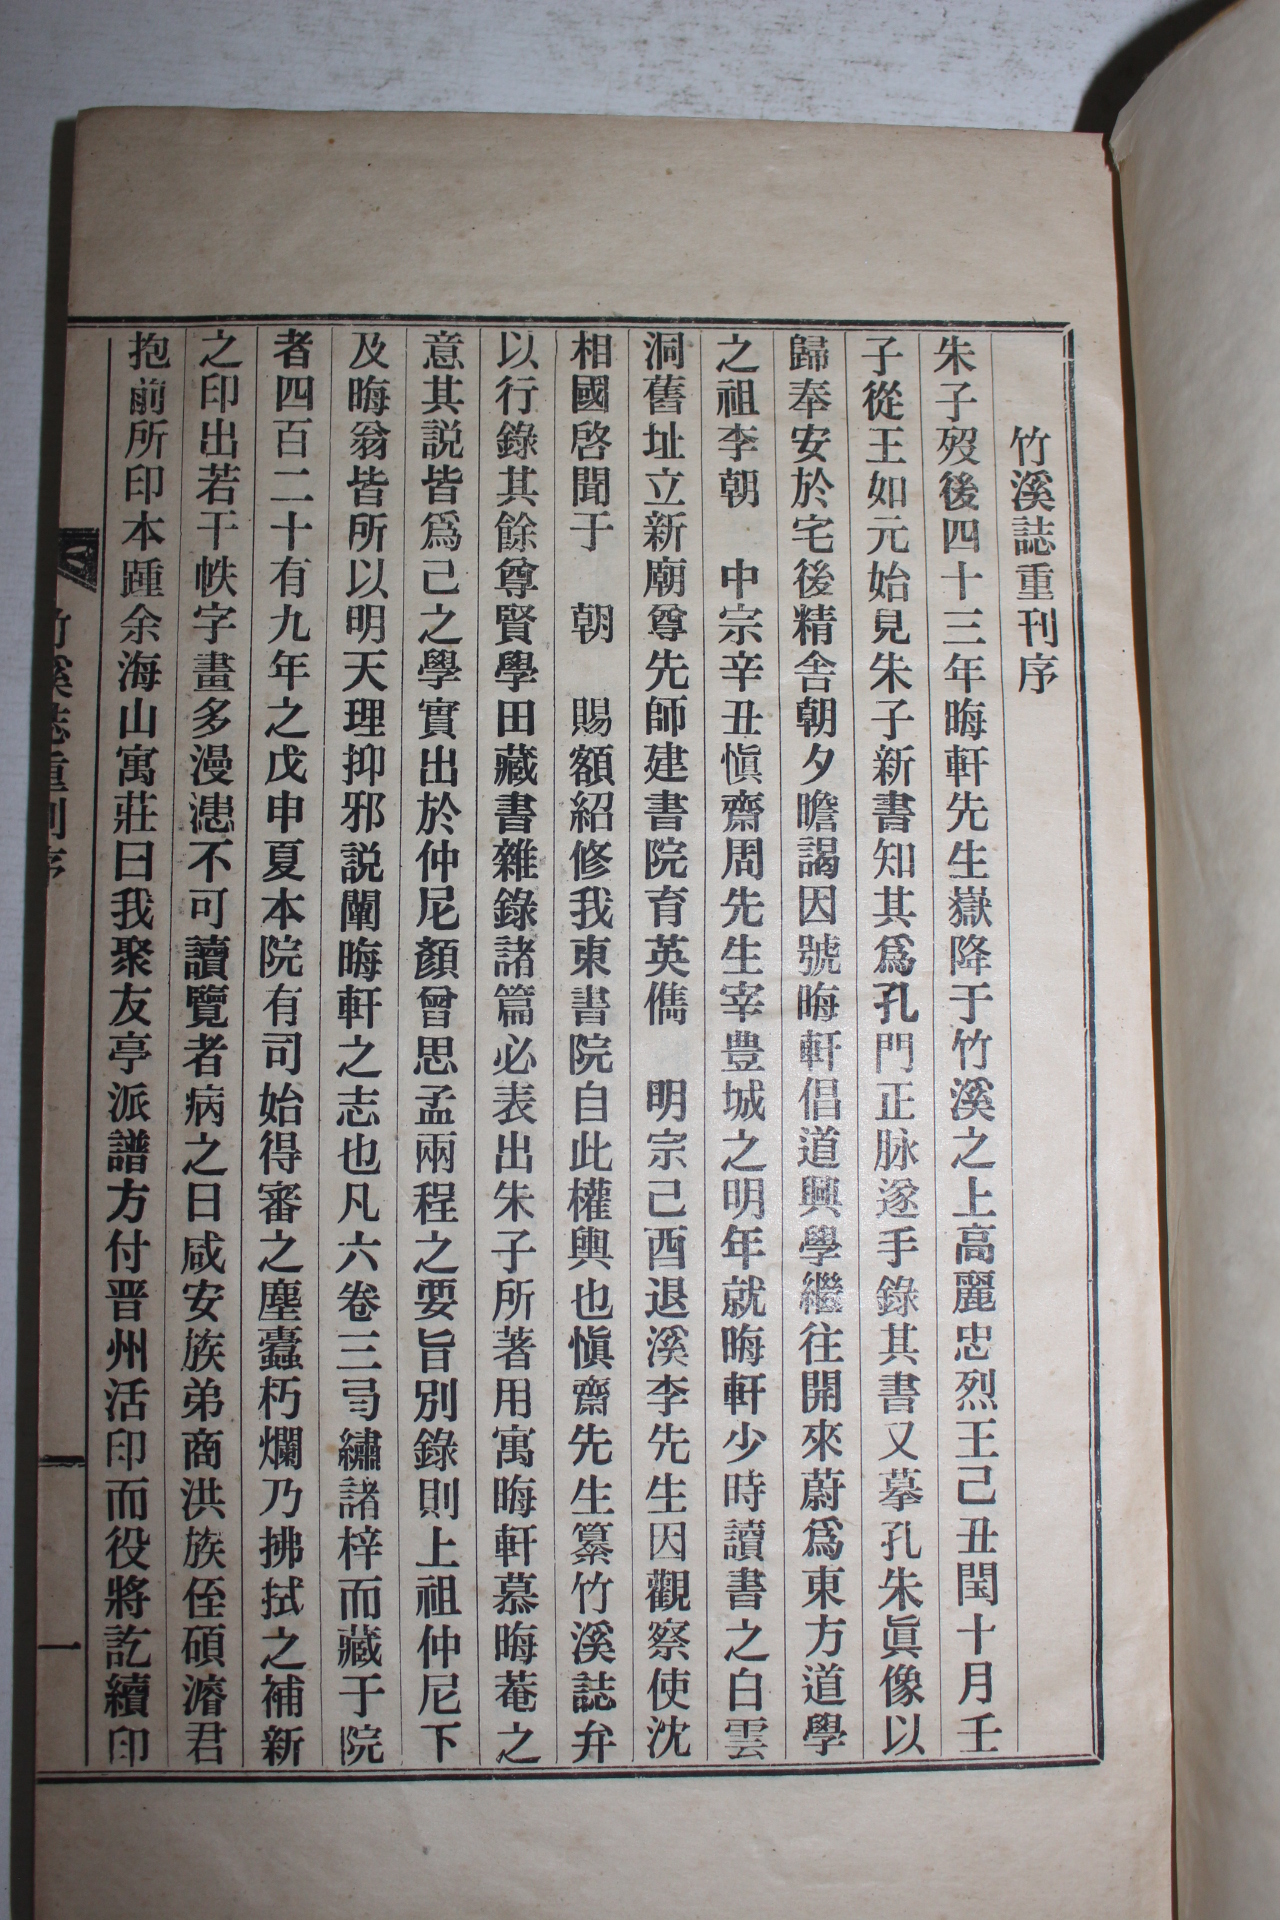 竹溪誌重刊序
朱子歿後四十三年晦軒先生嶽降于竹溪之上高麗忠烈王己丑閏十月壬
子從王如元始見朱子新書知其爲孔門正脉遂手錄其書又摹孔朱眞像以
歸奉安於宅後精舍朝夕瞻謁因號晦軒倡道興學繼往開來蔚爲東方道學
之祖李朝　中宗辛丑愼齋周先生宰豊城之明年就晦軒少時讀書之白雲
洞舊址立新廟尊先師建書院育英儁　明宗己酉退溪李先生因觀察使沈
相國啓聞于　朝　賜額紹修我東書院自此權輿也愼齋先生纂竹溪誌弁
以行錄其餘尊賢學田藏書雜錄諸篇必表出朱子所著用寓晦軒慕晦菴之
意其説皆爲己之學實出於仲尼顏曾思孟兩程之要旨別錄則上祖仲尼下
及晦翁皆所以明天理抑邪説闡晦軒之志也凡六卷三弓繡諸梓而藏于院
者四百二十有九年之戊申夏本院有司始得審之塵蠹朽爛乃拂拭之補新
之印出若干帙字畫多漫漶不可讀覽者病之日咸安族弟商洪族侄碩濬君
抱前所印本踵余海山寓莊曰我聚友亭派譜方付晋州活印而役將訖續印
竹溪誌重刊序
一